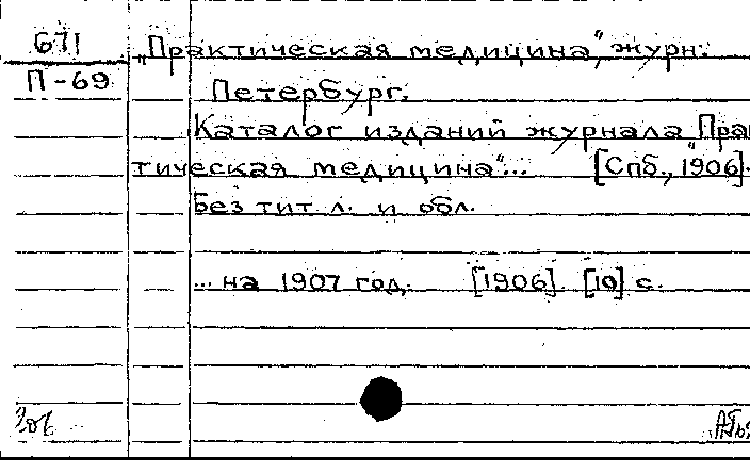 671
П-69
„Практическая медицина“, журн.
Петербург.
Каталог изданий журнала „Прак
тическая медицина“... [Спб., 1906].
Без тит. л. и обл.
... на 1907 год. [1906]. [10] с.
306